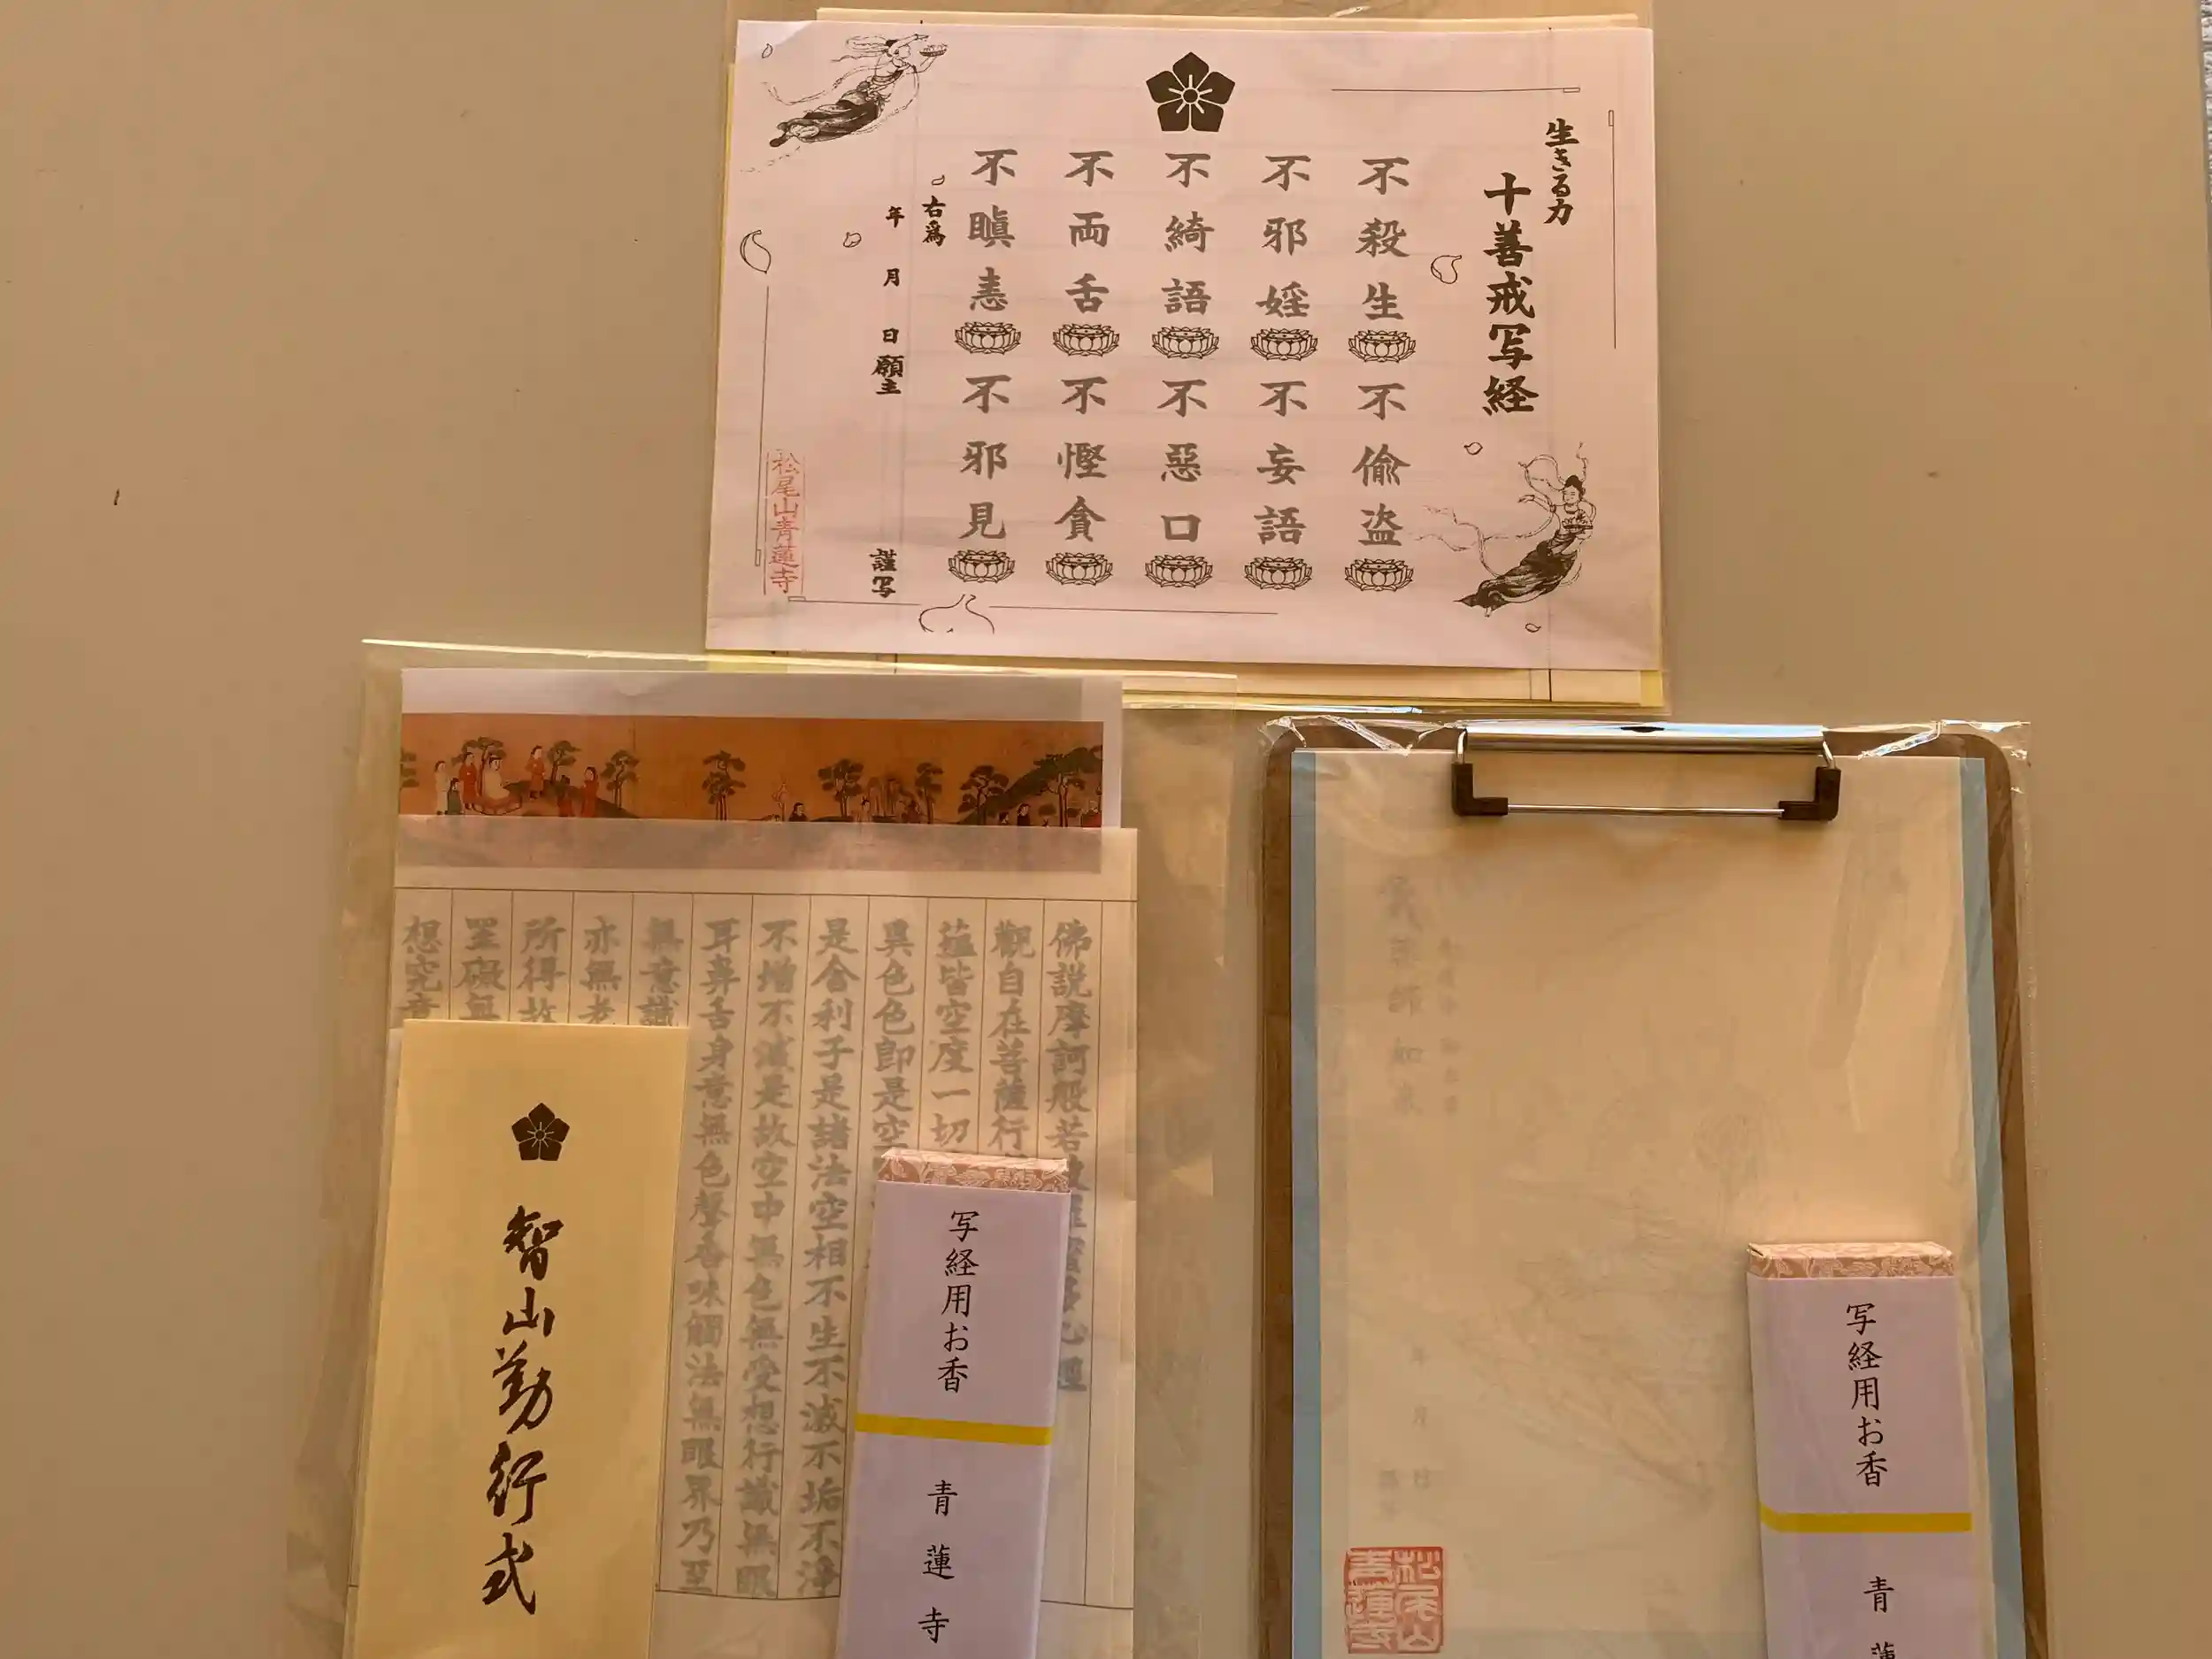 生きる力
十善戒写経
不殺生
不偸盗
不邪婬
不妄語
不綺語
不惡口
不両舌
不慳貪
不瞋恚
不邪見
右為
年 月 日 願主 謹写
松尾山青蓮寺
佛説摩訶般若
觀自在菩薩行
蘊皆空度一切
異色色即是空
是舎利子是諸法空相不生不滅不垢不淨
不增不減是故空中無色無受想行識無眼
耳鼻舌身意無色聲香味觸法無眼界乃至
無意識
亦無老
所得故
罣礙無
想究竟
智山勤行式
写経用お香
青蓮寺
年 月 日
松尾山
青蓮寺
写経用お香
青蓮